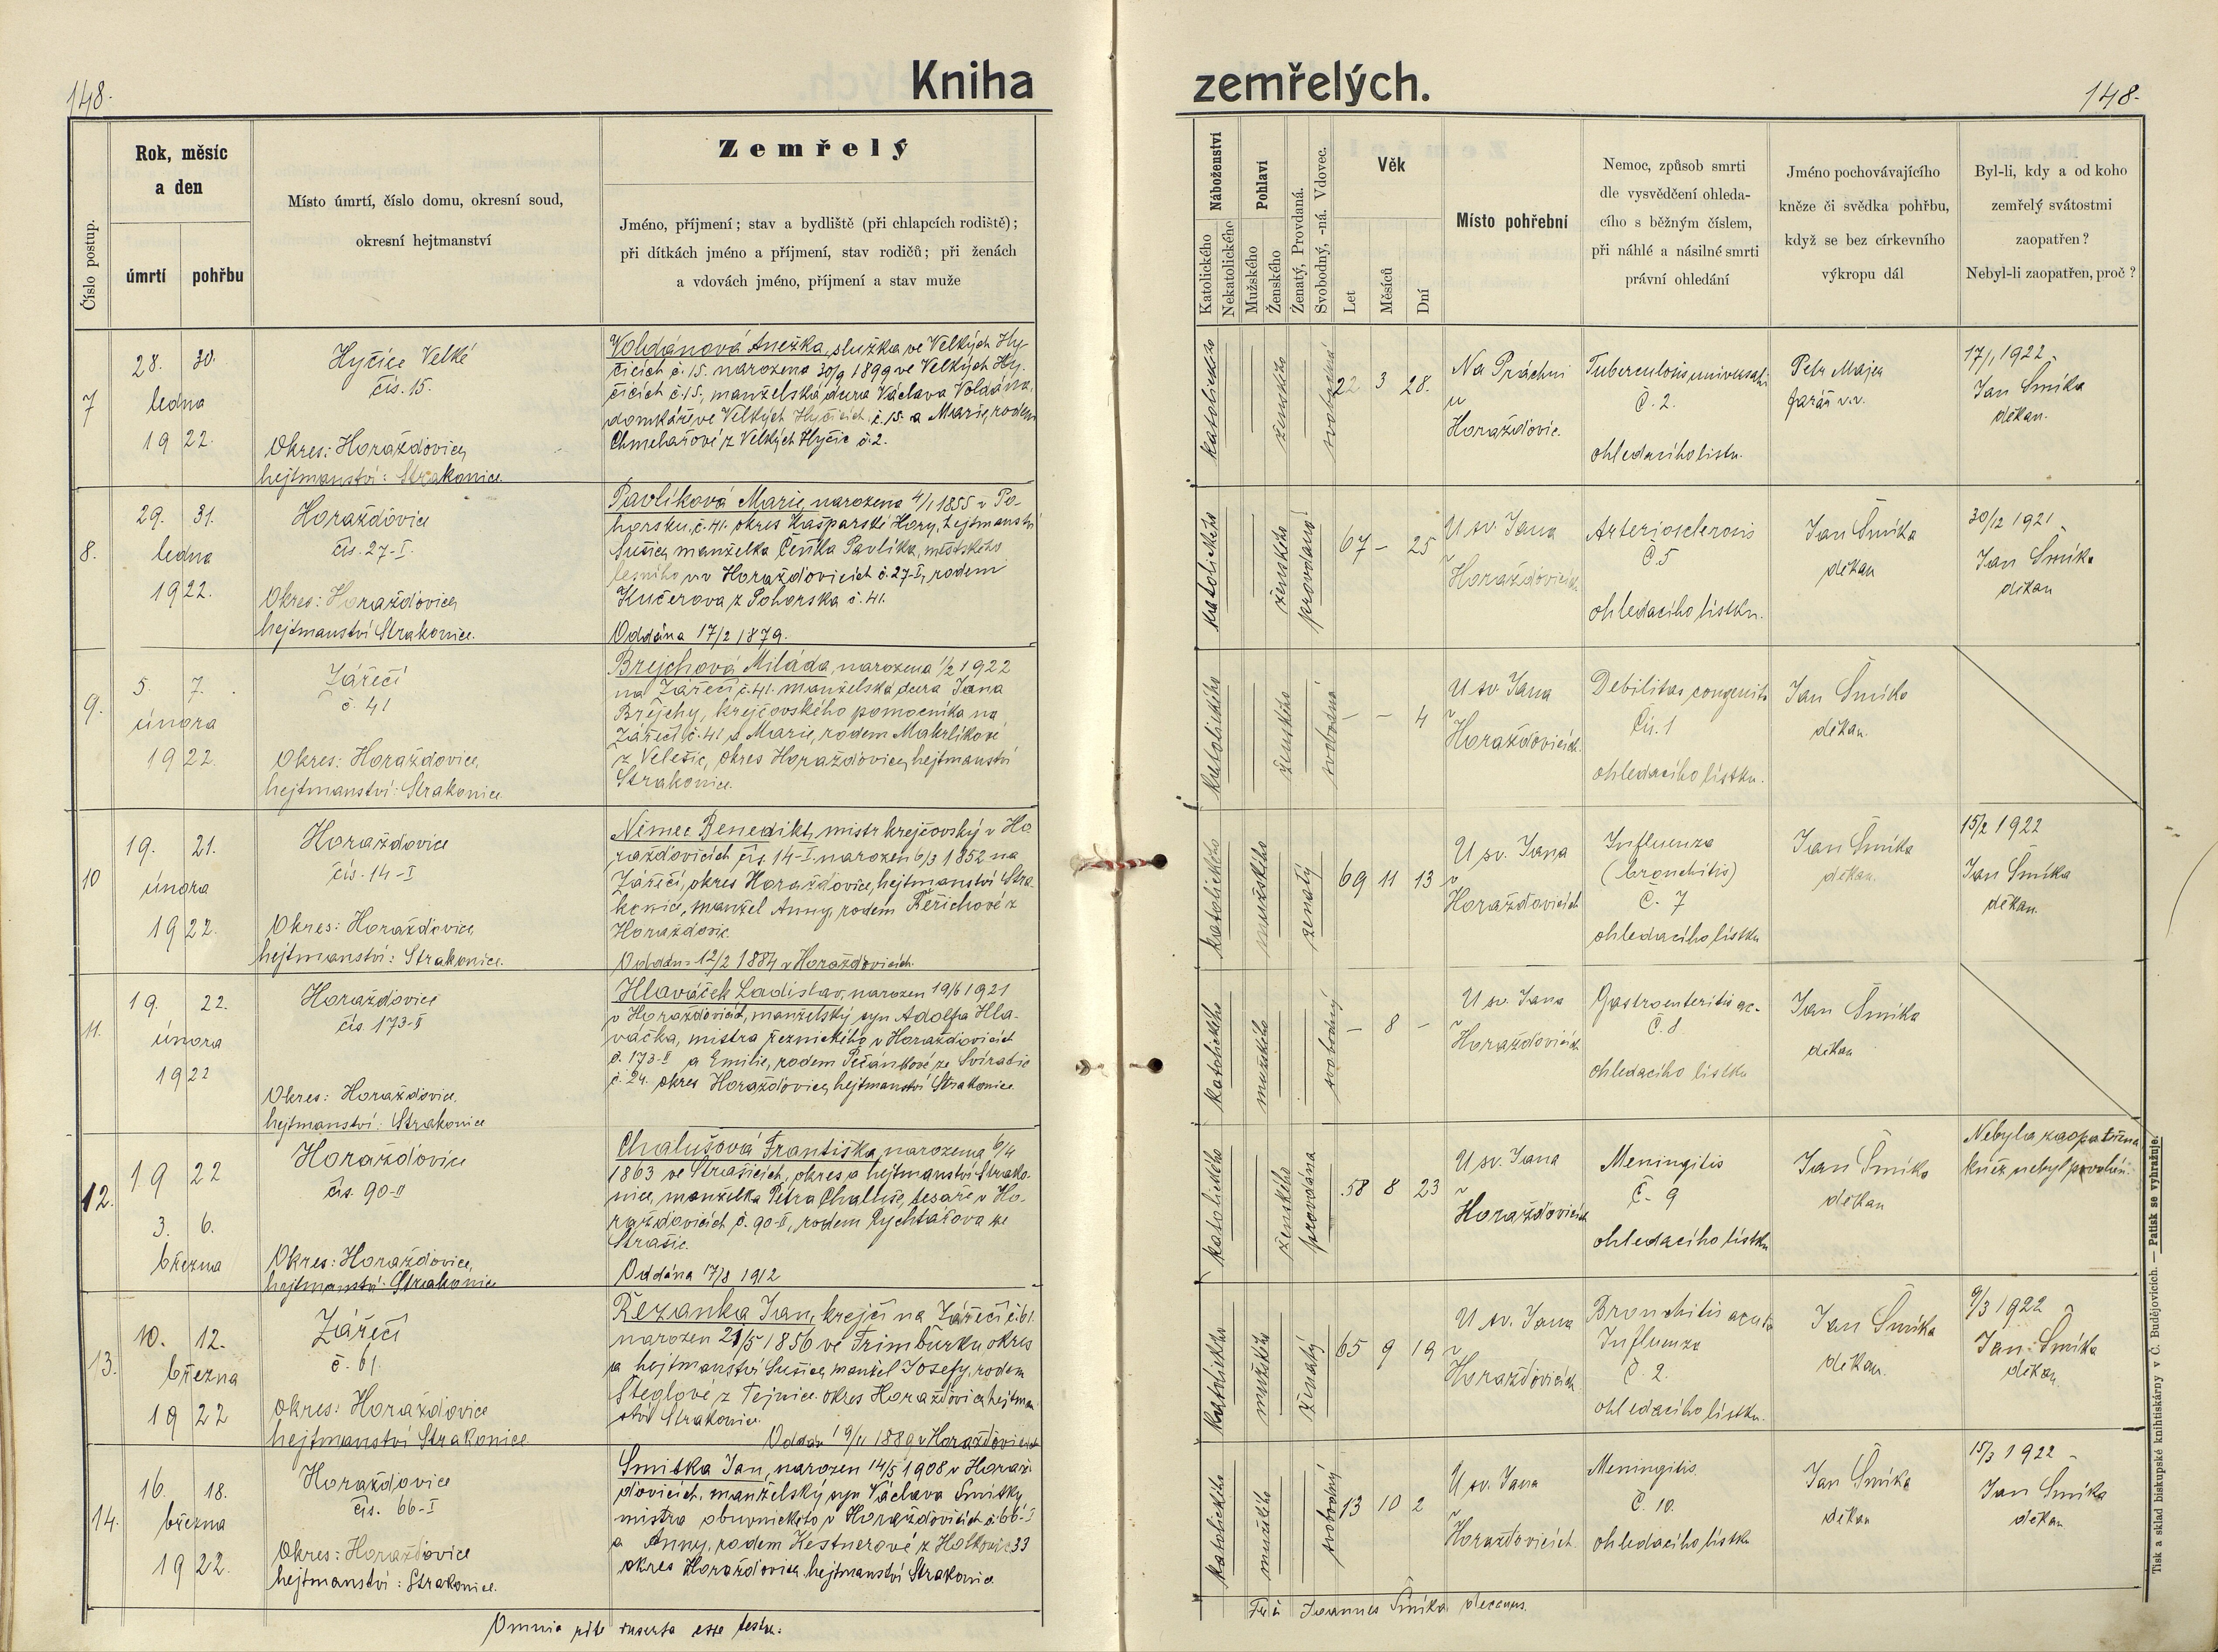 148.
Kniha
zemřelých.
148.
Číslo postup.
Rok, měsíc
a den
úmrtí
pohřbu
Místo úmrtí, číslo domu, okresní soud,
okresní hejtmanství
Zemřelý
Jméno, příjmení; stav a bydliště (při chlapcích rodiště);
při dítkách jméno a příjmení, stav rodičů; při ženách
a vdovách jméno, příjmení a stav muže
Náboženství
Katolického
Nekatolického
Pohlaví
Mužského
Ženského
Ženatý, Provdaná.
Svobodný, -ná. Vdovec.
Věk
Let
Měsíců
Dní
Místo pohřební
Nemoc, způsob smrti
dle vysvědčení ohleda-
cího s běžným číslem,
při náhlé a násilné smrti
právní ohledání
Jméno pochovávajícího
kněze či svědka pohřbu,
když se bez církevního
výkropu dál
Byl-li, kdy a od koho
zemřelý svátostmi
zaopatřen?
Nebyl-li zaopatřen, proč?
7
28. 30.
ledna
1922.
Hyčice Velké
čís. 15.
Okres: Horažďovice,
hejtmanství: Strakonice.
Voldánová Anežka, služka ve Velkých Hy-
čicích č. 15. narozena 30/9 1899 ve Velkých Hy-
čicích č. 15, manželská dcera Václava Voldána,
domkáře ve Velkých Hyčicích č. 15. a Marie, rodem
Chmelařové z Velkých Hyčic č. 2.
katolického
ženského
svobodná
22 3 28.
Na Práchni
u
Horažďovic.
Tuberculosis universalis
Č. 2.
ohledacího listu.
Petr Majer
farář v.v.
17/1 1922.
Jan Šmíka
děkan.
8.
29. 31.
ledna
1922.
Horažďovice
čís. 27-I.
Okres: Horažďovice,
hejtmanství Strakonice.
Pavlíková Marie, narozena 4/1 1855 v Po-
horsku, č. 41. okres Kašperské Hory, hejtmanství
Sušice, manželka Čeňka Pavlíka, městského
lesního v.v. v Horažďovicích č. 27-I, rodem
Kučerova z Pohorska č. 41.
Oddána 17/2 1879.
katolického
ženského
provdaná
67 - 25
U sv. Jana
v
Horažďovicích
Arteriosclerosis
Č. 5
ohledacího lístku.
Jan Šmíka
děkan
30/12 1921
Jan Šmíka
děkan
9.
5. 7.
února
1922.
Záříčí
č. 41
Okres: Horažďovice,
hejtmanství: Strakonice.
Brejchová Miláda, narozena 1/2 1922
na Záříčí č. 41. manželská dcera Jana
Brejchy, krejčovského pomocníka na
Záříčí č. 41 a Marie, rodem Makrlíkové
z Velešic, okres Horažďovice, hejtmanství
Strakonice.
katolického
ženského
svobodná
- - 4
U sv. Jana
v
Horažďovicích.
Debilitas congenita
Čís. 1
ohledacího lístku.
Jan Šmíka
děkan.
10
19. 21.
února
1922.
Horažďovice
čís. 14-I
Okres: Horažďovice,
hejtmanství: Strakonice.
Němec Benedikt, mistr krejčovský v Ho-
ražďovicích čís. 14-I. narozen 6/3 1852 na
Záříčí, okres Horažďovice, hejtmanství Stra-
konice, manžel Anny, rodem Řeřichové z
Horažďovic.
Oddán 12/2 1884 v Horažďovicích.
katolického
mužského
ženatý
69 11 13
U sv. Jana
v
Horažďovicích
Influenza
(bronchitis)
Č. 7
ohledacího lístku
Jan Šmíka
děkan.
15/2 1922
Jan Šmíka
děkan.
11.
19. 22.
února
1922
Horažďovice
čís. 173-II
Okres: Horažďovice.
hejtmanství: Strakonice
Hlaváček Ladislav, narozen 19/6 1921
v Horažďovicích, manželský syn Adolfa Hla-
váčka, mistra řeznického v Horažďovicích
č. 173-II a Emilie, rodem Pečánkové ze Svíradic
č. 24. okres Horažďovice, hejtmanství Strakonice
katolického
mužského
svobodný
- 8 -
U sv. Jana
v
Horažďovicích
Gastroenteritis ac-
Č. 8
ohledacího lístku
Jan Šmíka
děkan
12.
19 22
3. 6.
března
Horažďovice
čís. 90-II
Okres: Horažďovice,
hejtmanství: Strakonice
Chalušová Františka, narozena 6/4
1863 ve Strašicích, okres a hejtmanství Strako-
nice, manželka Petra Chaluše, tesaře v Ho-
ražďovicích č. 90-II, rodem Rychtářova ze
Strašic.
Oddána 17/8 1912
katolického
ženského
provdána
58 8 23
U sv. Jana
v
Horažďovicích
Meningitis
Č. 9
ohledacího lístku
Jan Šmíka
děkan
Nebyla zaopatřena
kněz nebyl povolán.
13.
10. 12.
března
1922
Záříčí
č. 61.
Okres: Horažďovice
hejtmanství Strakonice
Řezanka Jan, krejčí na Záříčí č. 61.
narozen 21/5 1856 ve Trimburku, okres
a hejtmanství Sušice, manžel Josefy, rodem
Šteglove z Tejnice. okres Horažďovice, hejtman-
ství Strakonice.
Oddán 19/11 1889 v Horažďovicích
katolického
mužského
ženatý
65 9 19
U sv. Jana
v
Horažďovicích
Bronchitis acuta
Influenza
Č. 2.
ohledacího lístku.
Jan Šmíka
děkan.
9/3 1922
Jan Šmíka
děkan.
14.
16. 18.
března
1922.
Horažďovice
čís. 66-I
Okres: Horažďovice
hejtmanství: Strakonice.
Smitka Jan, narozen 14/5 1908 v Horaž-
ďovicích, manželský syn Václava Smitky
mistra obuvnického v Horažďovicích č. 66-I
a Anny, rodem Kestnerové z Holkovic 33
okres Horažďovice, hejtmanství Strakonice
katolického
mužského
svobodný
13 10 2
U sv. Jana
v
Horažďovicích.
Meningitis.
Č. 10.
ohledacího lístku
Jan Šmíka
děkan
15/3 1922
Jan Šmíka
děkan
Omnia rite inserta esse testor:
Joannes Šmíka decanus.
Tisk a sklad biskupské knihtiskárny v Č. Budějovicích. — Patisk se vyhražuje.